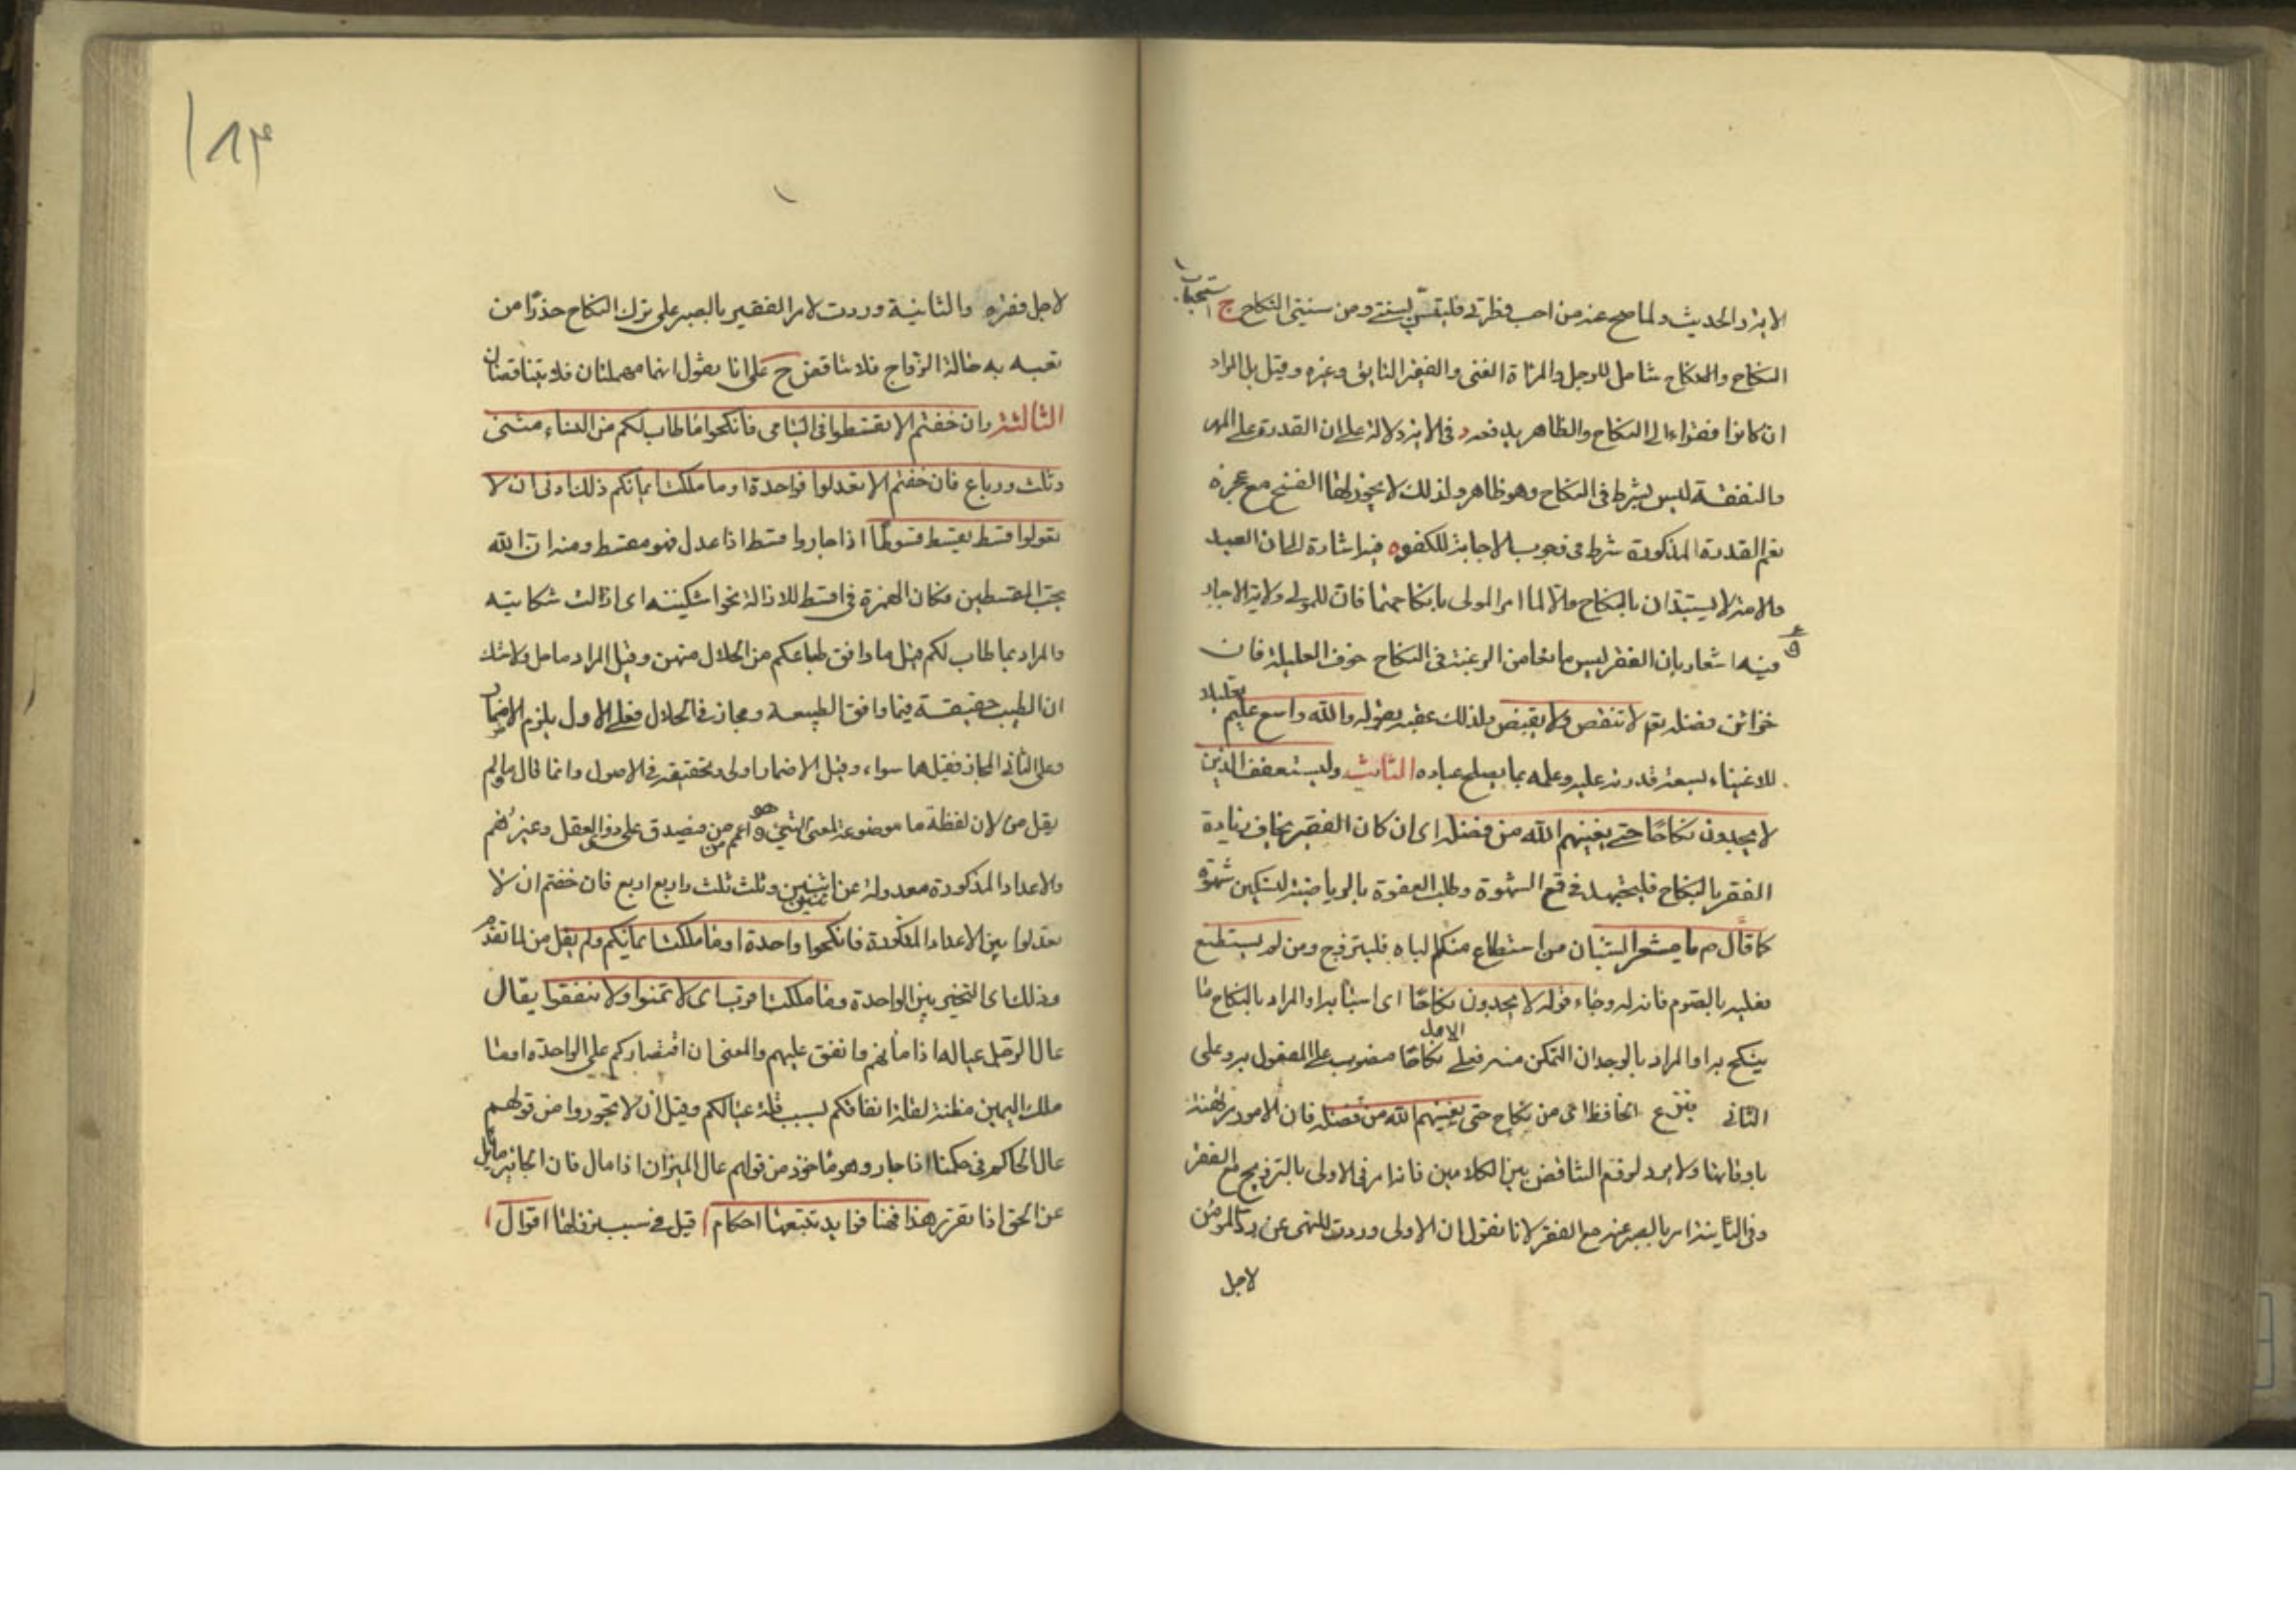 الاية والحديث ولما صح عنه من احب فطرتي فليستن بسنتي ومن سنتي النكاح ج استحباب
النكاح والانكاح شامل للرجل والمرأة الغنى والفقير التايق وغيره وقيل بل المراد
ان كانوا فقراء الى النكاح والظاهر بعده د فى الاية دلالة على ان القدرة على المهر
والنفقة ليس بشرط فى النكاح وهو ظاهر ولذلك لا يجوز لها الفسخ مع عجزه
نعم القدرة المذكورة شرط فى وجوب الاجابة للكفو ه فيه اشارة الى ان العبد
والامة لا يستبدان بالنكاح والا لما امر المولى بانكاحهما فان للمولى ولاية الاجبار
فيه اشعار بان الفقر ليس مانعا من الرغبة فى النكاح خوف العيلة فان
خزائن فضله تع لا تنقص ولا يقبض ولذلك عقبه بقوله والله واسع عليم
للاغنياء لسعة قدرته عليه وعلمه بما يصلح عباده الثانية وليستعفف الذين
لا يجدون نكاحا حتى يغنيهم الله من فضله اى ان كان الفقير يخاف زيادة
الفقر بالنكاح فليجتهد فى قمع الشهوة وطلب العفوة بالرياضة لتسكين شهوته
كما قال ص يا معشر الشبان من استطاع منكم الباه فليتزوج ومن لم يستطع
فعليه بالصوم فانه له وجاء قوله لا يجدون نكاحا اى اسبابه او المراد بالنكاح ما
ينكح به او المراد بالوجدان التمكن منه فعلى الاول نكاحا منصوب على المفعول به وعلى
الثانى بنزع الخافظ اى من نكاح حتى يغنيهم الله من فضله فان الامور مرتهنة
باوقاتها ولا يرد لوقع التناقض بين الكلامين فانه امر فى الاولى بالتزويج مع الفقر
وفى الثانية امر بالصبر عنه مع الفقر لانا نقول ان الاولى وردت للنهى عن رد المؤمن
لاجل
لاجل فقره والثانية وردت لامر الفقير بالصبر على ترك النكاح حذرا من
تعبه به حالة الزواج فلا تناقض ح على انا نقول انهما مهملتان فلا يتناقضان
الثالثة وان خفتم الا تقسطوا فى اليتامى فانكحوا ما طاب لكم من النساء مثنى
وثلث ورباع فان خفتم الا تعدلوا فواحدة او ما ملكت ايمانكم ذلك ادنى ان لا
تعولوا قسط يقسط قسوطا اذا جار واقسط اذا عدل فهو مقسط ومنه ان الله
يحب المقسطين فكان الهمزة فى اقسط للازالة نحو اشكيته اى ازالت شكايته
والمراد بما طاب لكم قيل ما وافق طباعكم من الحلال منهن وقيل المراد ما حل ولا شك
ان الطيب حقيقة فيما وافق الطبيعة ومجاز فى الحلال فعلى الاول يلزم الاضمار
وعلى الثانى المجاز فقيل هما سواء وقيل الاضمار اولى وتحقيقه فى الاصول وانما قال ما ولم
يقل من لان لفظة ما موضوعة لمعنى الشئ وهو اعم من فيصدق على ذوى العقل وغيرهم
والاعداد المذكورة معدولة عن اثنين وثلث ثلث واربع اربع فان خفتم ان لا
تعدلوا بين الاعداد المذكورة فانكحوا واحدة او ما ملكت ايمانكم ولم يقل من لما تقدم
وذلك اى التخير بين الواحدة وما ملكت اقرب اى لا تمونوا ولا تنفقوا يقال
عال الرجل عياله اذا مأنهم وانفق عليهم والمعنى ان اقتصاركم على الواحدة او ما
ملك اليمين مظنة لقلة انفاقكم بسبب قلة عيالكم وقيل ان لا تجوروا من قولهم
عال الحاكم فى حكمه اذا جار وهو ماخوذ من قولهم عال الميزان اذا مال فان الجائر مايل
عن الحق اذا تقرر هذا فهنا فوايد تتبعها احكام ا قيل فى سبب نزولها اقوال ا